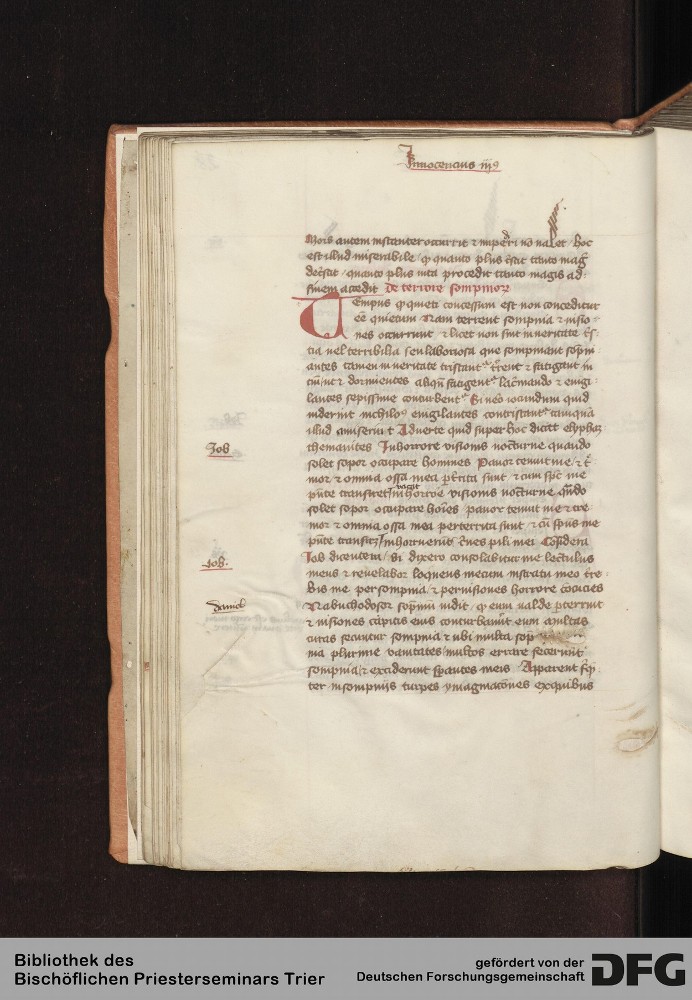 Innocencius iij⁹
Mors autem instanter occurrit ⁊ inpedīri nō valet / hoc
est illud miserabile / ꝙ quanto plus c̄scit tanto maḡ
dec̄scit / quanto plus vita procedit tanto magis ad
finem accedit De terrore sompnioꝝ
Tempus ꝙ quieti concessum est non conceditur
eē quietum Nam terrent sompnia ⁊ visio
nes occurrunt ⁊ licet non sint in veritate t̄s
tia vel terribilia seu laboriosa que sompniant sōpni
antes tamen in veritate tristant᷑ t̄rent᷑ ⁊ fatigant᷑ in
tm̄ vt ⁊ dormientes aliqn̄ fatigent᷑ lac̄mando ⁊ euigi
lantes sepissime conturbent᷑ Si v̄o iocundum quid
viderint nichilo⁹ euigilantes contristant᷑ tamquā
illud amiserint Aduerte quid super hoc dicat elyphaz
Job
themanites In horrore visionis nocturne quando
solet sopor occupare homines Pauor tenuit me / ⁊ t̄
mor ⁊ omnia ossa mea pert̄rita sunt ⁊ cum spc̄ me
pn̄te transiret
vacat
In horrore visionis nocturne qn̄do
solet sopor occupare hoīes pauor tenuit me ⁊ tre
mor ⁊ omnia ossa mea perterrita sunt ⁊ cū spūs me
pn̄te transirꝫ Inhorruerūt c̄nes pili mei Cōsidera
Job.
Job dicentem / Si dixero consolabitur me lectulus
meus ⁊ releuabor loquens mecum in stratu meo t̄re
bis me per sompnia / ⁊ per visiones horrore ꝯcucies
Daniel
Nabuchodosor sopniū vidit / ꝙ eum valde ꝑterruit
⁊ visiones capitis eius conturbauūt eum Multas
curas secuntur sompnia ⁊ vbi multa sop
nia plurime vanitates / multos errare fecerunt
sompnia / ⁊ exciderunt sꝑantes in eis Apparent freq̄
ter in sompniis turpes ymaginacōnes ex quibus
Bibliothek des
Bischöflichen Priesterseminars Trier
gefördert von der
Deutschen Forschungsgemeinschaft
DFG